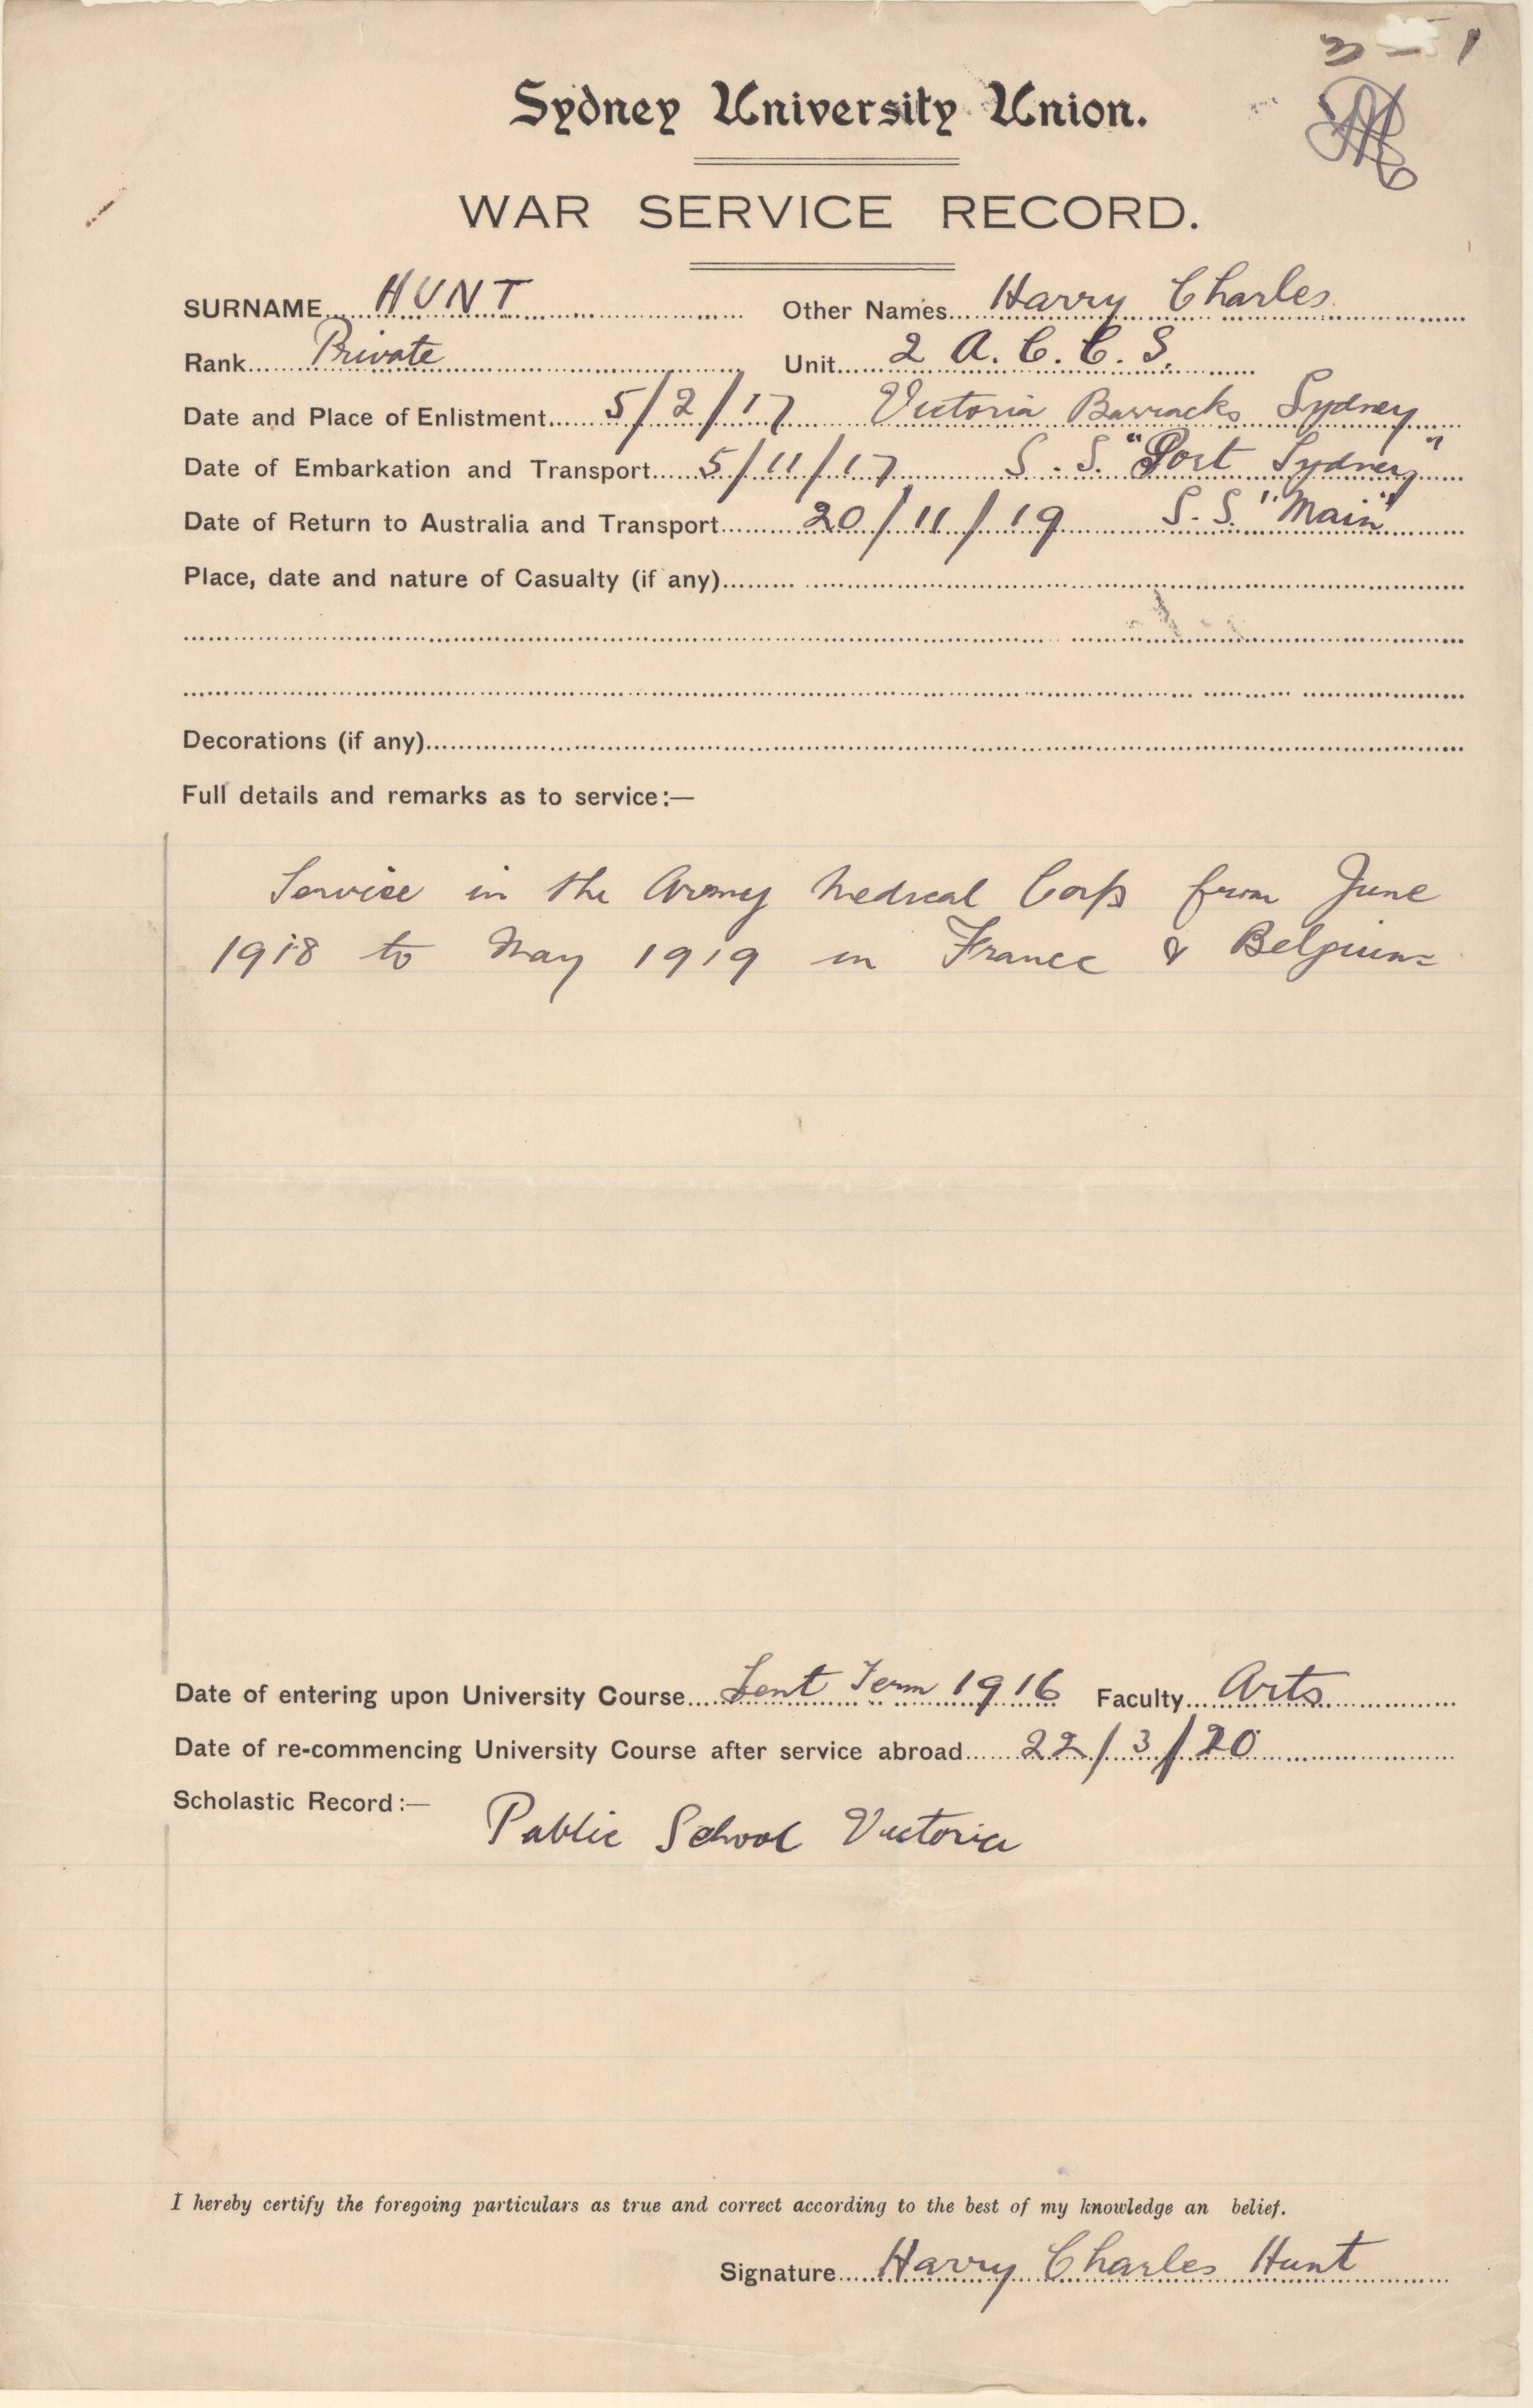 3 – 1
Sydney University Union.
WAR SERVICE RECORD.
SURNAME HUNT Other Names Harry Charles
Rank Private Unit 2 A. C. C. S.
Date and Place of Enlistment 5/2/17 Victoria Barracks Sydney
Date of Embarkation and Transport 5/11/17 S. S. "Port Sydney"
Date of Return to Australia and Transport 20/11/19 S. S. "Main"
Place, date and nature of Casualty (if any)
Decorations (if any)
Full details and remarks as to service:—
Service in the Army Medical Corps from June
1918 to May 1919 in France & Belgium
Date of entering upon University Course Lent Term 1916 Faculty Arts
Date of re-commencing University Course after service abroad 22/3/20
Scholastic Record:—
Public School Victoria
I hereby certify the foregoing particulars as true and correct according to the best of my knowledge an belief.
Signature Harry Charles Hunt